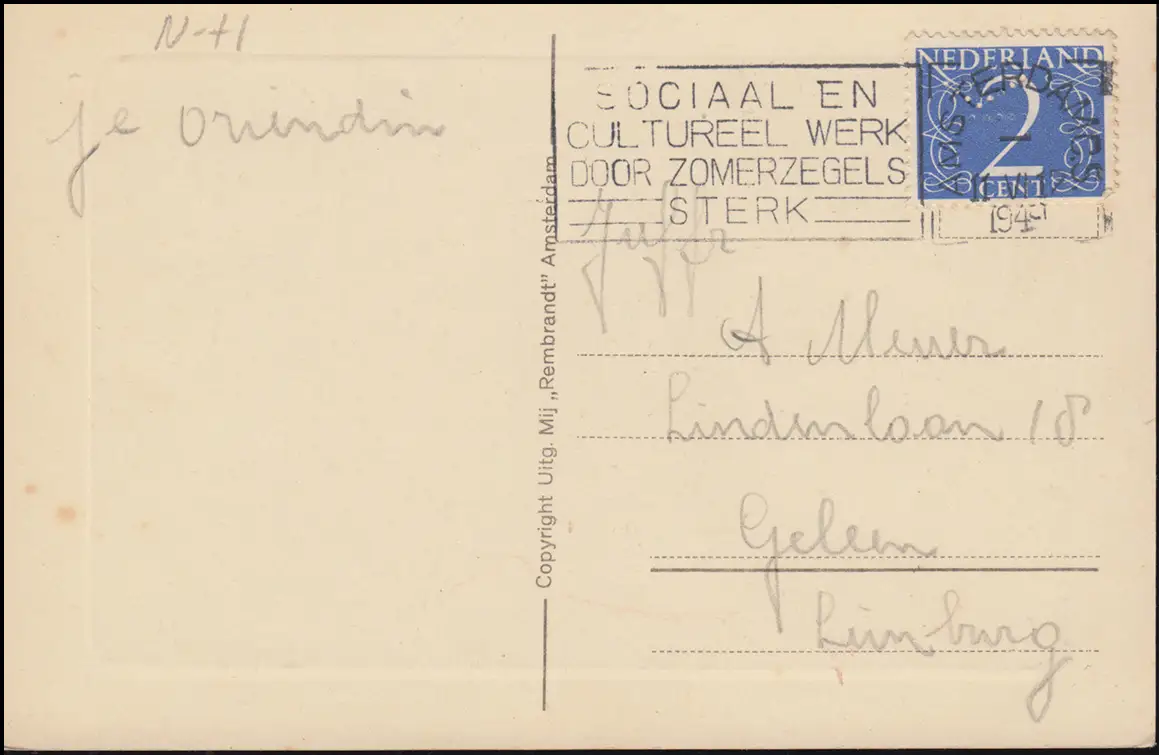 N-H
je vriendin
SOCIAAL EN
CULTUREEL WERK
DOOR ZOMERZEGELS
STERK
NEDERLAND
2
CENT
AMSTERDAM C.S
VI
194
Juffr
A
Lindenlaan 18
Geleen
Limburg
Copyright Uitg. Mij „Rembrandt" Amsterdam